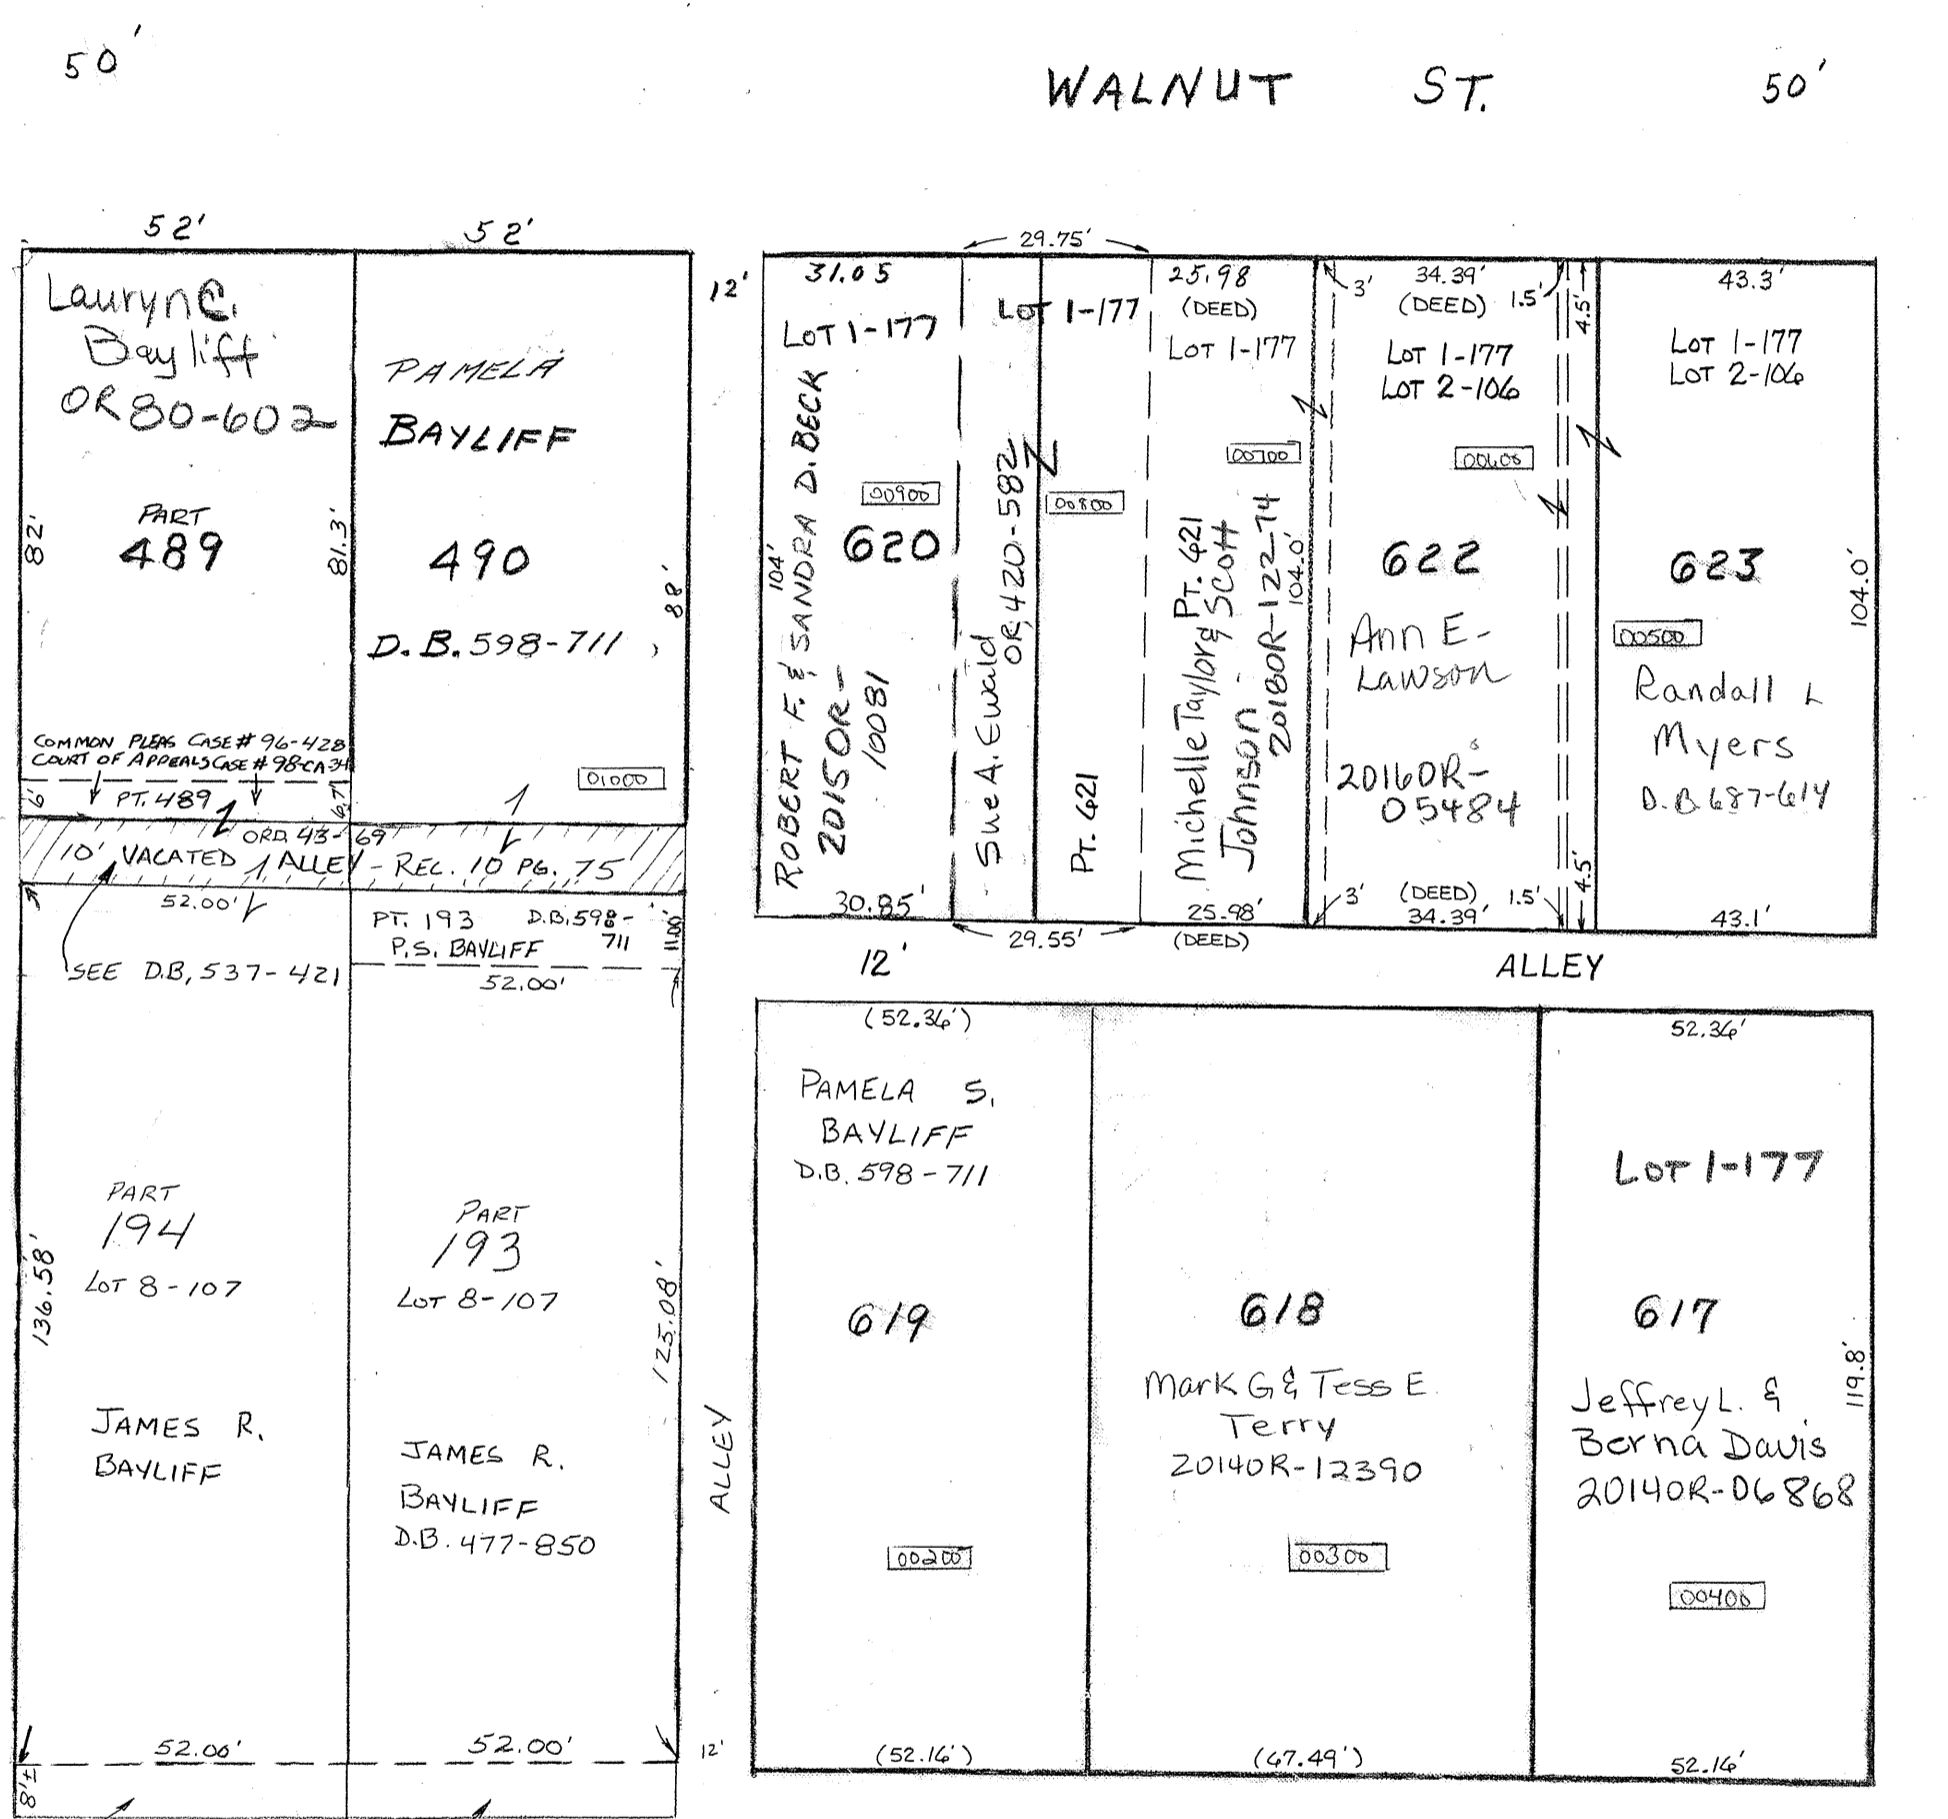 50'
WALNUT ST.
50'
52'
52'
Lauryn C.
Bayliff
OR 80-602
PART
489
82'
81.3'
COMMON PLEAS CASE # 96-428
COURT OF APPEALS CASE # 98-CA-34
6'
PT. 489
6.7'
PAMELA
BAYLIFF
490
88'
D.B. 598-711
01000
ORD. 43-69
10' VACATED ALLEY - REC. 10 PG. 75
52.00'
SEE D.B. 537-421
PT. 193 D.B. 598-
711
P.S. BAYLIFF
11.00'
52.00'
PART
194
LOT 8-107
136.58'
JAMES R.
BAYLIFF
52.00'
8'±
PART
193
LOT 8-107
125.08'
JAMES R.
BAYLIFF
D.B. 477-850
52.00'
12'
ALLEY
12'
31.05
LOT 1-177
104'
ROBERT F. & SANDRA D. BECK
2015OR-
10081
00900
620
30.85'
29.75'
LOT 1-177
Sue A. Ewald
OR 420-582
00800
PT. 621
29.55'
25.98
(DEED)
LOT 1-177
00700
Michelle Taylor & Scott
Johnson
2018OR-122-74
PT. 621
104.0'
25.98'
(DEED)
3'
34.39'
(DEED)
1.5'
4.5'
LOT 1-177
LOT 2-106
00600
622
Ann E-
Lawson
2016OR-
05484
3'
(DEED)
34.39'
1.5'
4.5'
43.3'
LOT 1-177
LOT 2-106
623
104.0'
00500
Randall L
Myers
D.B 687-614
43.1'
12'
ALLEY
(52.36')
PAMELA S.
BAYLIFF
D.B. 598-711
619
00200
(52.16')
618
Mark G & Tess E.
Terry
2014OR-12390
00300
(67.49')
52.36'
LOT 1-177
617
119.8'
Jeffrey L. &
Berna Davis
2014OR-06868
00400
52.16'